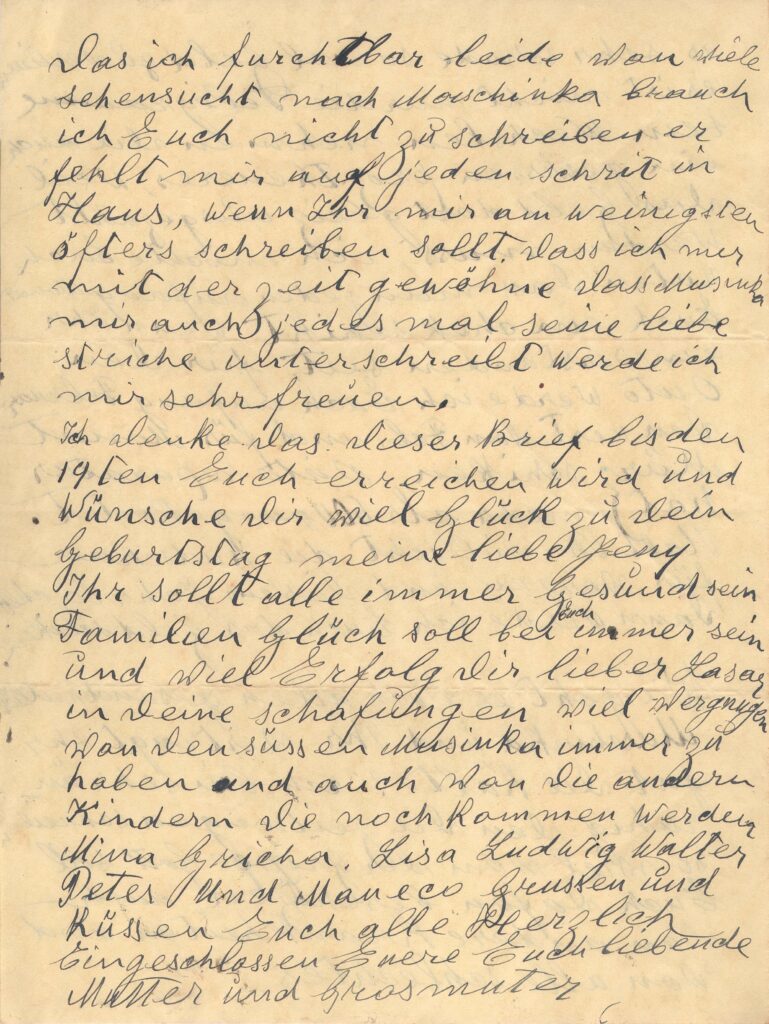 Das ich furchtbar leide von viele
sehensucht nach Mauschinka brauch
ich Euch nicht zu schreiben er
fehlt mir auf jeden schrit in
Haus, wenn Ihr mir am weinigsten
öfters schreiben sollt. dass ich mir
mit der zeit gewöhne dass Musinka
mir auch jedes mal seine liebe
striche unterschreibt werde ich
mir sehr freuen.
Ich denke das dieser Brief bis den
19ten Euch erreichen wird und
Wünsche dir viel Glück zu dein
Geburtstag meine liebe Jeny
Ihr sollt alle immer Gesund sein
Familien Glüch soll bei Euch immer sein
und viel Erfolg dir lieber Lasar
in deine schafungen viel vergnugen
von den süssen Musinka immer zu
haben und auch von die andern
Kindern die noch kommen werden
Mina Gricha. Lisa Ludwig Walter
Peter und Maneco Grussen und
Küssen Euch alle Herzlich
Eingeschlossen Euere Euch liebende
Mutter und Grosmuter